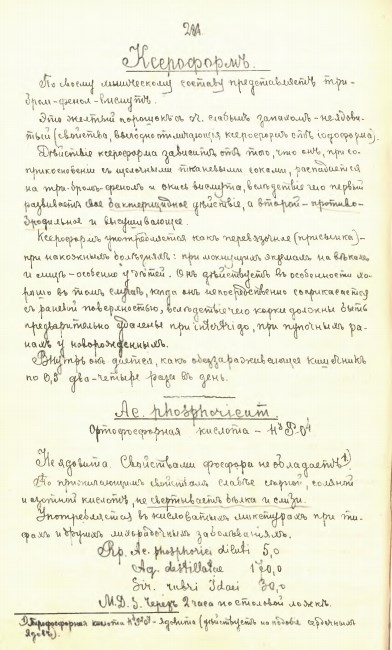 Ксероформъ.
По своему химическому составу представляетъ три-
бром-фенол-висмутъ.
Это желтый порошокъ съ слабымъ запахомъ - неядови-
тый (свойства, выгодно отличающія ксероформъ отъ іодоформа).
Дѣйствіе ксероформа зависитъ отъ того, что онъ, при со-
прикосновеніи съ щелочными тканевыми соками, распадается
на три-бром-фенол и окись висмута, вследствіе чего первый
развиваетъ свое бактерицидное дѣйствіе, а второй - противо-
и высушивающее.
Ксероформъ употребляется какъ перевязочное (присыпка) -
при накожныхъ болезняхъ: при мокнущихъ экземахъ на вѣкахъ
и лицѣ - особенно у дѣтей. Онъ дѣйствуетъ въ особенности хо-
рошо въ томъ случаѣ, когда онъ непосредственно соприкасается
съ раневой поверхностью, вследствіе чего корки должны быть
предварительно удалены при intertrigo, при пупочныхъ ра-
нахъ у новорожденныхъ.
Внутрь онъ дается, какъ обеззараживающее кишечникъ
по 0,5 два-четыре раза въ день.
Ac. phosphoricum.
Ортофосфорная кислота - H³PO⁴
Не ядовита. Свойствами фосфора не обладаетъ 1)
По прижигающимъ свойствамъ слабѣе сѣрной, соляной
и азотной кислотъ, не свертываетъ бѣлка и слизи.
Употребляется въ кисловатыхъ микстурахъ при ти-
фахъ и другихъ лихорадочныхъ заболѣваніяхъ.
Rp. Ac. phosphorici diluti 5,0
Aq. destillatae 170,0
Sir. rubri Idaei 30,0
M.D.S. Черезъ 2 часа по столовой ложкѣ.
кислота - ядовита (дѣйствуетъ на подобіе сердечныхъ
ядовъ).